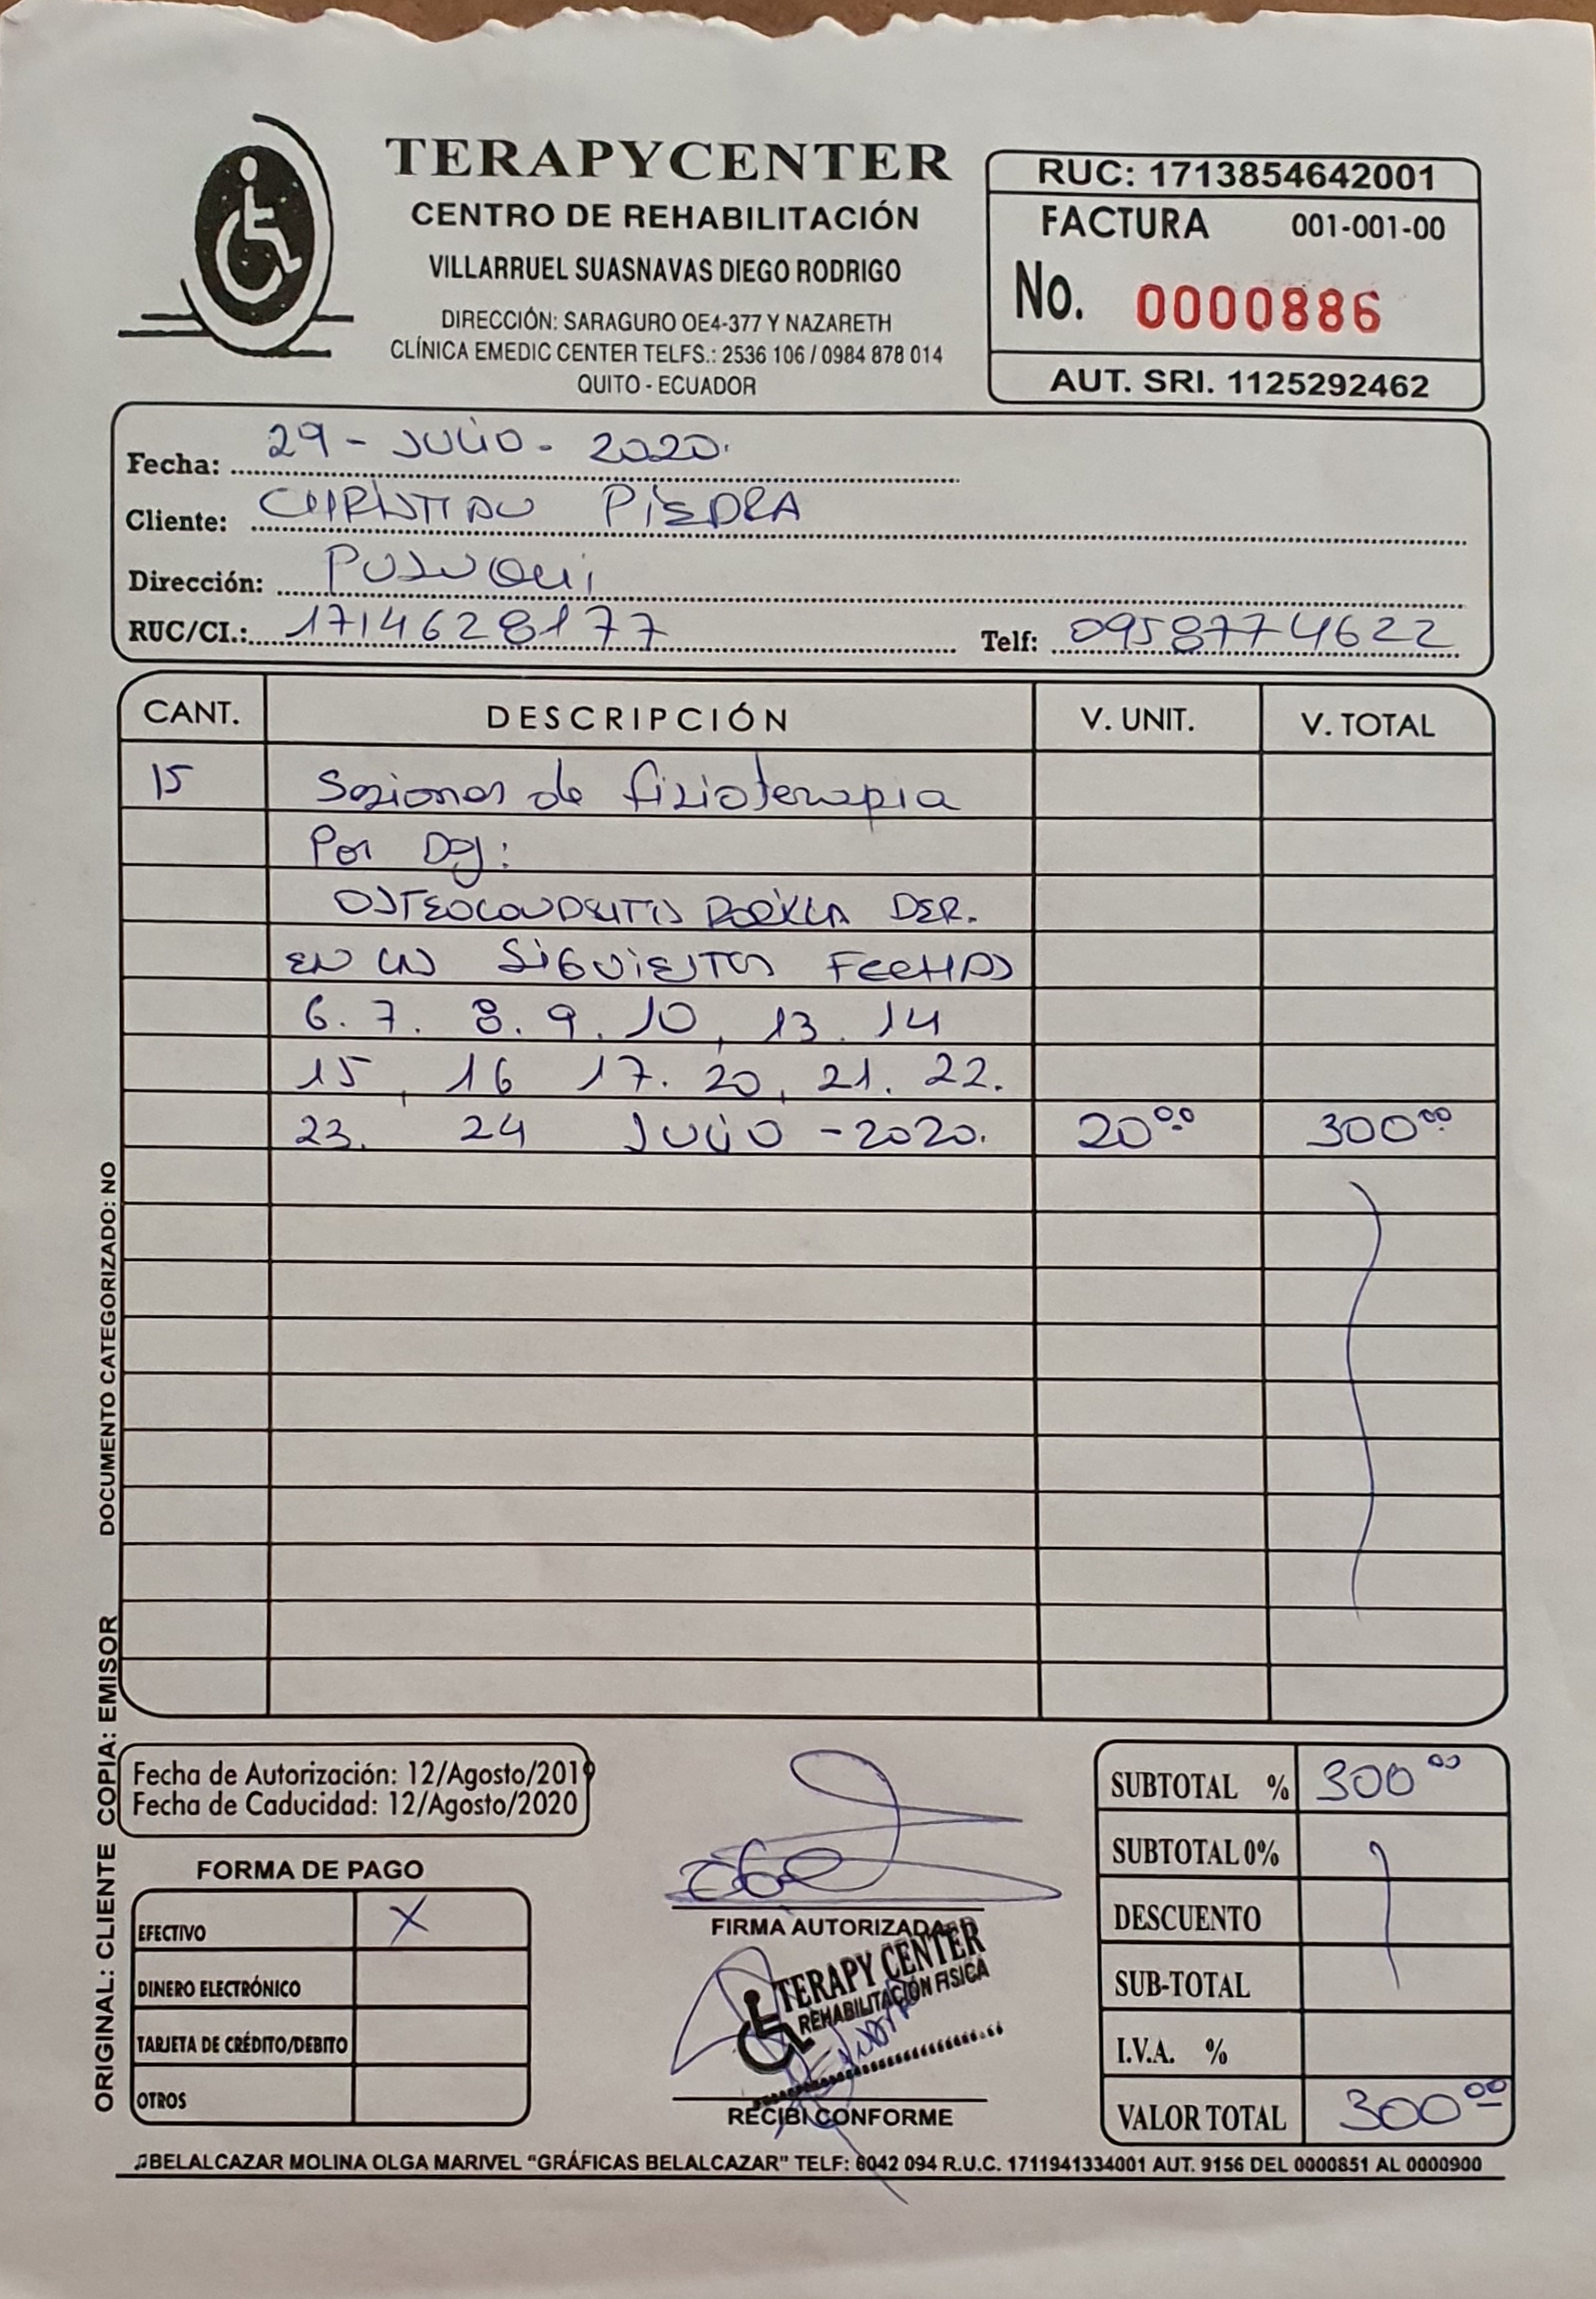 TERAPYCENTER
CENTRO DE REHABILITACIÓN
VILLARRUEL SUASNAVAS DIEGO RODRIGO
DIRECCIÓN: SARAGURO OE4-377 Y NAZARETH
CLÍNICA EMEDIC CENTER TELFS.: 2536 106 / 0984 878 014
QUITO - ECUADOR
RUC: 1713854642001
FACTURA 001-001-00
No. 0000886
AUT. SRI. 1125292462
Fecha: 29 - JULIO - 2020.
Cliente: CHRISTIAN PIEDRA
Dirección: PUSUQUI
RUC/CI.: 1714628177 Telf: 0958774622
CANT. DESCRIPCIÓN V. UNIT. V. TOTAL
15 Sesiones de fisioterapia
Por Dg:
OSTEOCONDRITIS RODILLA DER.
EN LAS SIGUIENTES FECHAS
6. 7. 8. 9. 10, 13. 14
15, 16 17. 20, 21. 22.
23. 24 JULIO - 2020. 20.00 300.00
DOCUMENTO CATEGORIZADO: NO
ORIGINAL: CLIENTE COPIA: EMISOR
Fecha de Autorización: 12/Agosto/2019
Fecha de Caducidad: 12/Agosto/2020
FORMA DE PAGO
EFECTIVO X
DINERO ELECTRÓNICO
TARJETA DE CRÉDITO/DEBITO
OTROS
FIRMA AUTORIZADA
TERAPY CENTER
REHABILITACIÓN FISICA
RECIBI CONFORME
SUBTOTAL % 300.00
SUBTOTAL 0%
DESCUENTO
SUB-TOTAL
I.V.A. %
VALOR TOTAL 300.00
BELALCAZAR MOLINA OLGA MARIVEL "GRÁFICAS BELALCAZAR" TELF: 6042 094 R.U.C. 1711941334001 AUT. 9156 DEL 0000851 AL 0000900